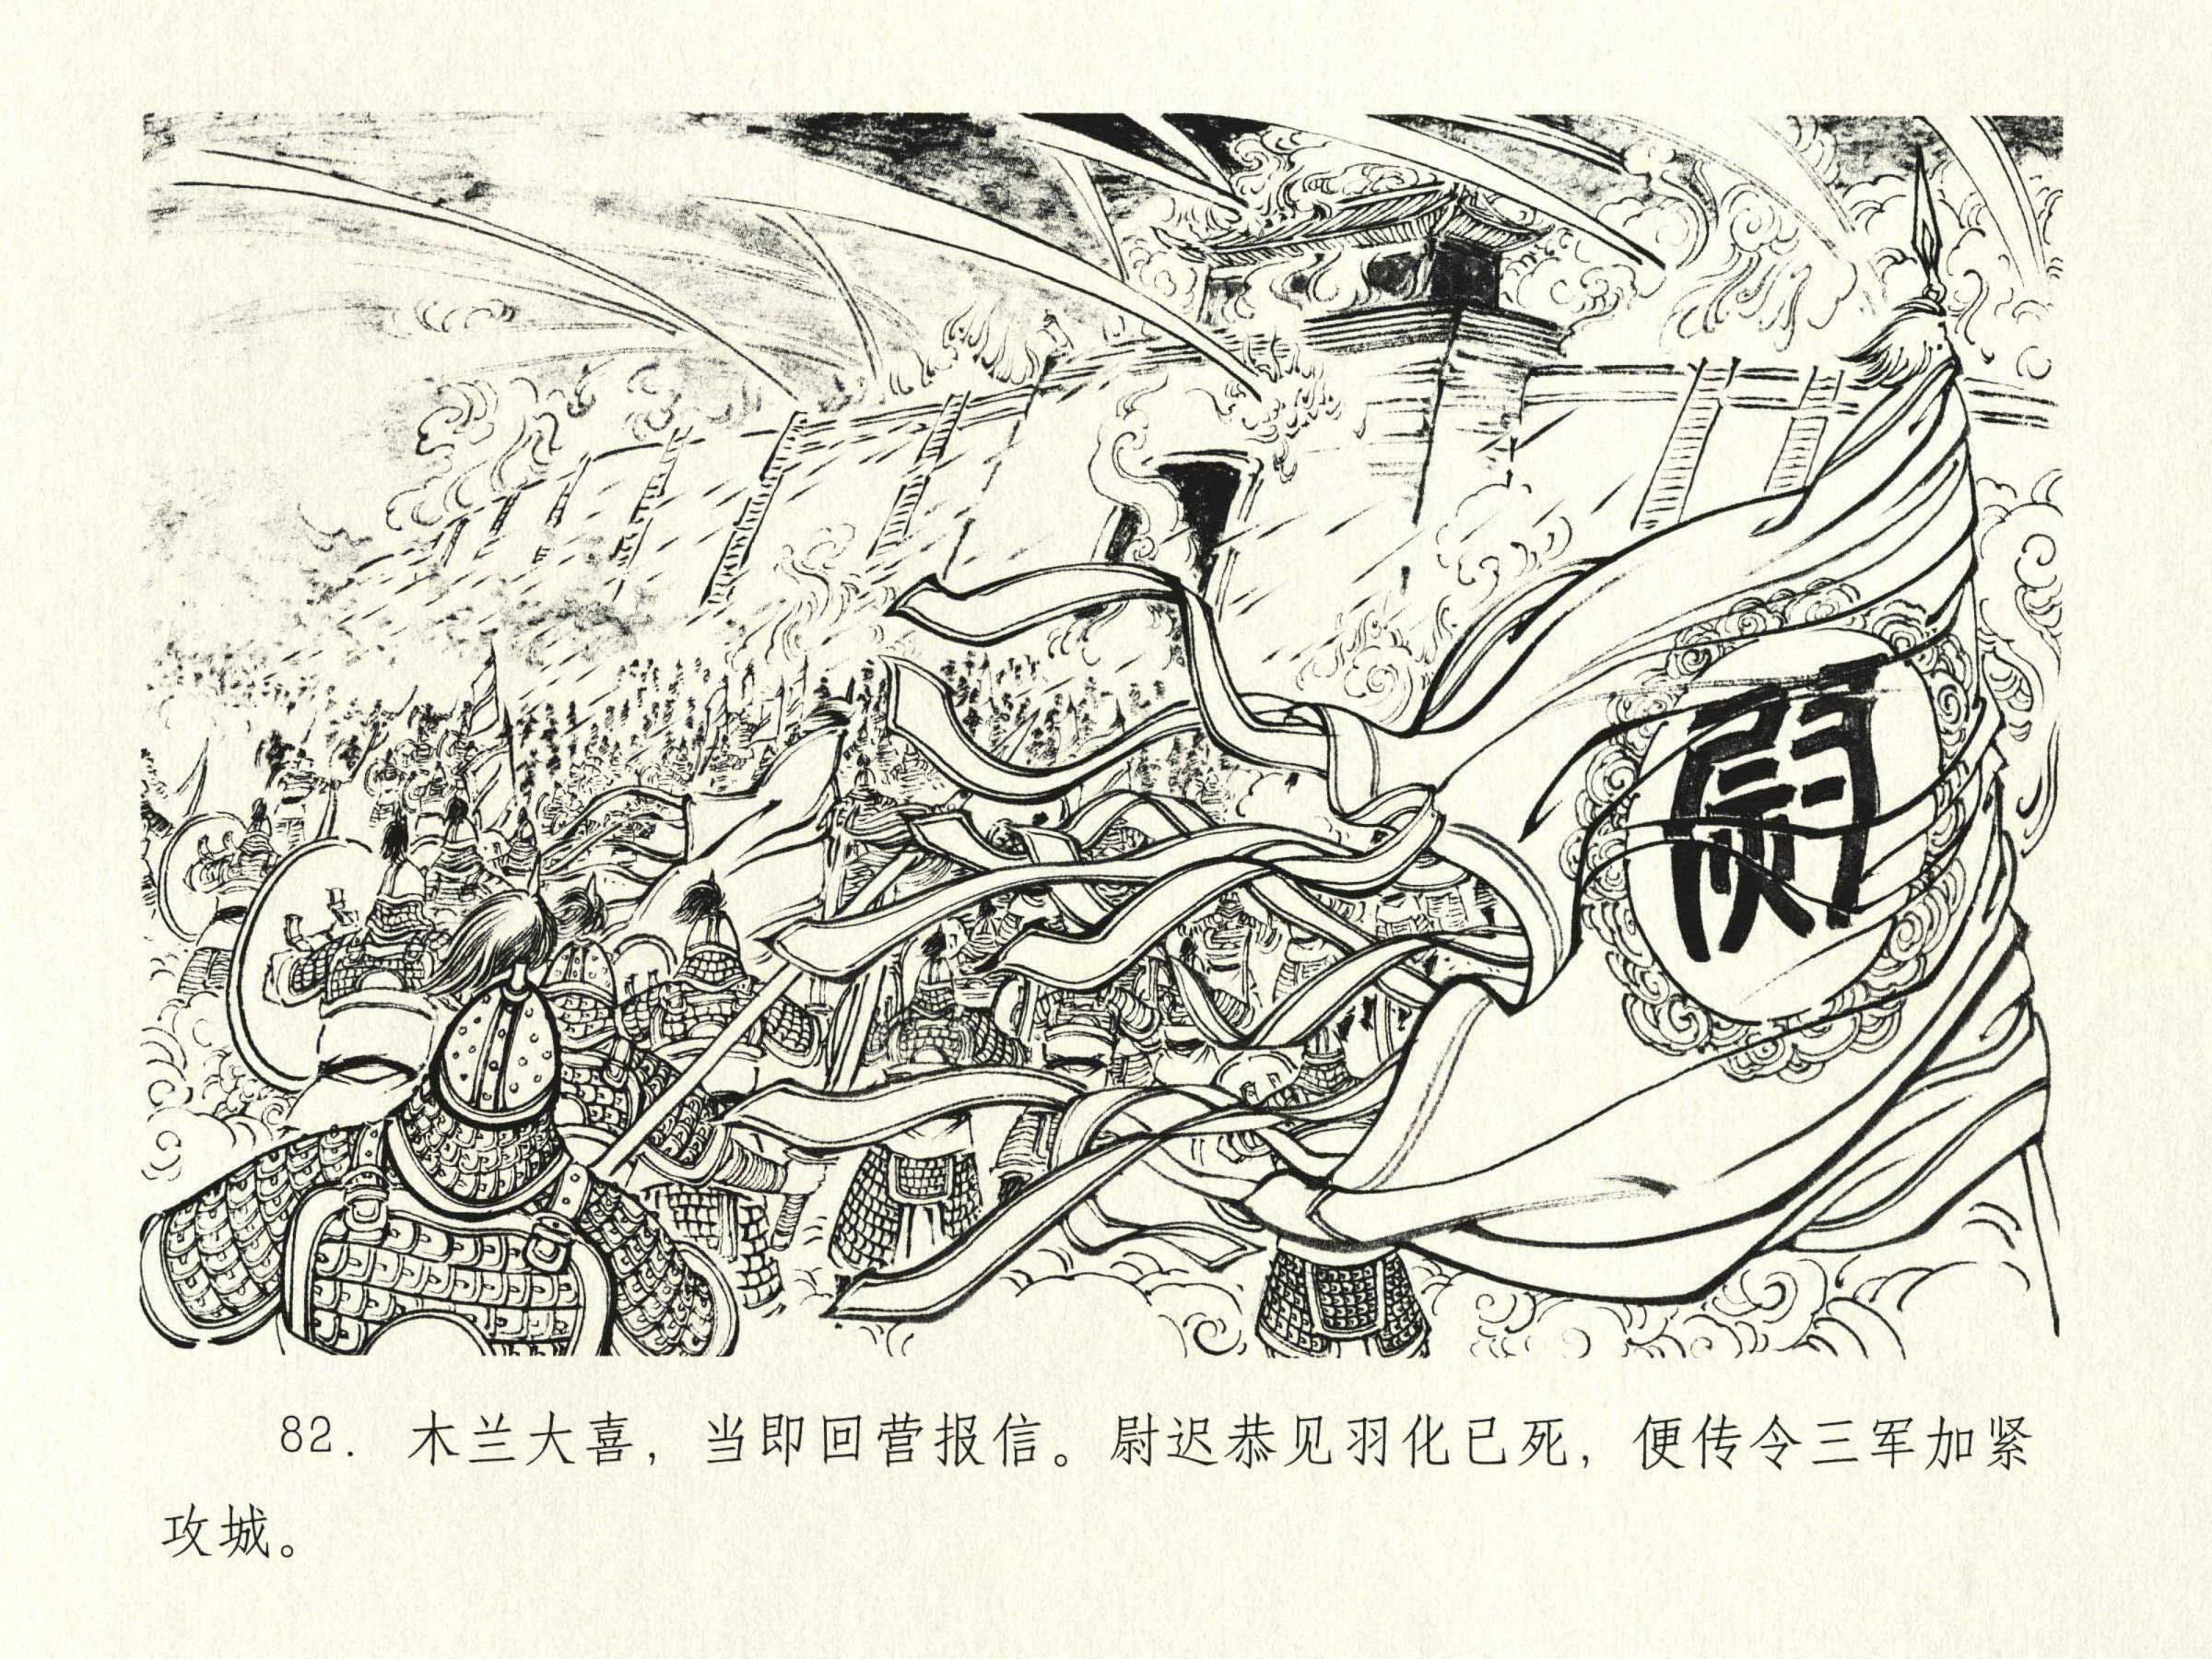 尉
82. 木兰大喜，当即回营报信。尉迟恭见羽化已死，便传令三军加紧
攻城。